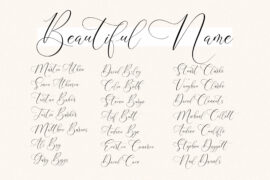 Beautiful Name
Martin Atkin
Simon Atkinson
Tristan Baker
Tristan Baker
Matthew Barnes
Ali Bey
Gary Biggs
David Boley
Colin Ball
Steven Barge
Asif Butt
Andrew Bye
David Cave
Stuart Clarke
Vaughan Clarke
David Clements
Michael Collett
Andrew Cunliffe
Stephen Daggett
Neil Daniels